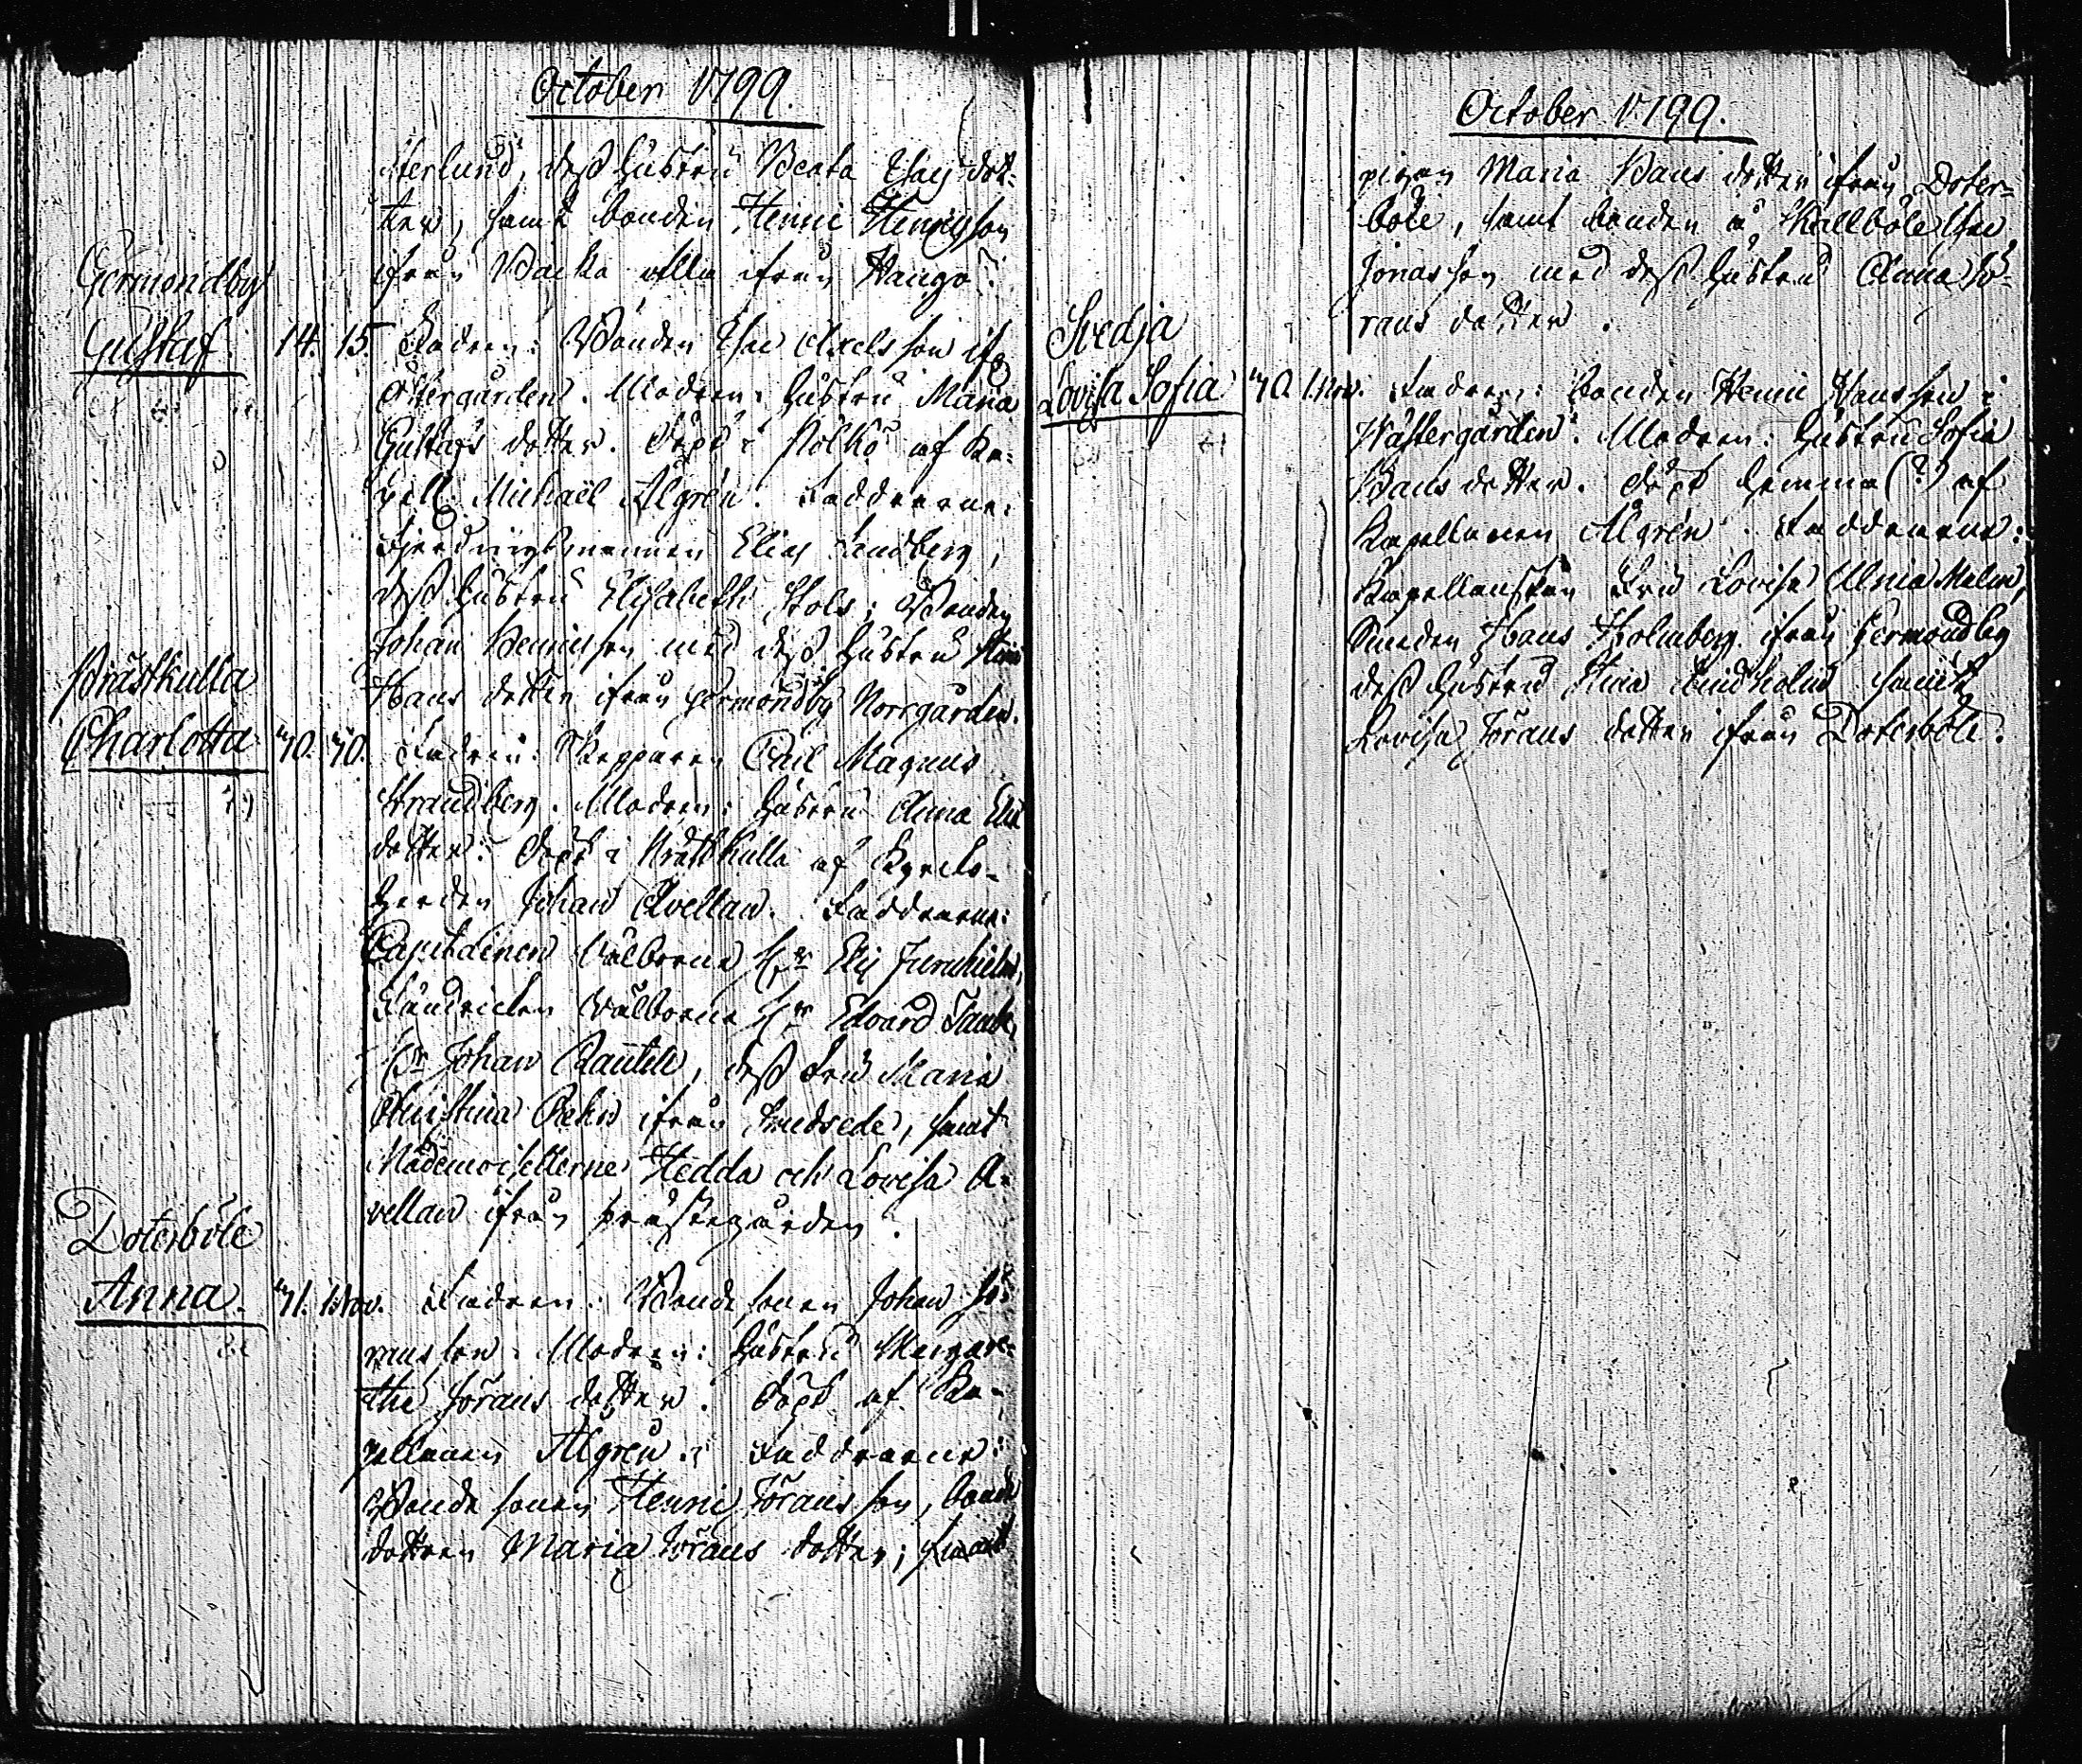 October 1799.
sterlund, dess hustru Beata Esais dot-
ter, samt bonden Henric Henricsson
ifrån Backa alla ifrån Hangö.
Germondby
Gustaf. 14. 15. Fadren: Bonden Esai Axelsson ifr.
Östergården. Modren: hustru Maria
Gustafs dotter. Döpt i Kölkö af Ka-
pell. Michaël Algrén. Faddrarne:
Fjerdingsmannen Elias Sundberg,
dess hustru Elisabeth Stols; Bonden
Johan Henricsson med dess hustru Stina
Hans dotter ifrån Germondby Norrgården.
Prästkulla
Charlotta 30. 30. Fadren: Skepparen Carl Magnus
Strandberg. Modren: hustru Anna Elis
dotter. Döpt i Prästkulla af Kyrko-
herden Johan Avellan. Faddrarne:
Capitainen Välborne Hr Elis Furuhielm,
Fändricken Välborne Hr Edvard Taube,
Hr Johan Rautell, dess fru Maria
Christina Rehn ifrån samt
Mademoisellerne Hedda och Lovisa A-
vellan ifrån prästegården.
Doterböle
Anna. 31. 1 Nov. Fadren: Bonde sonen Johan Jö-
ransson. Modren: hustru Margare-
tha Jörans dotter. Döpt af Ka-
pellanen Algren. Faddrarne:
Bonde sonen Henric Jöransson, bonde
dottren Maria Jörans dotter; samt
October 1799.
pigan Maria Hans dotter ifrån Doter-
böle, samt bonden å Kallböle Esai
Jonasson med dess hustru Anna Jö-
rans dotter.
Svedja
Lovisa Sofia 30. 1. Nov. Fadren: bonden Henric Hansson i
Wästergården. Modren: hustru Sofia
Hans dotter. Döpt hemma (?) af
Kapellanen Algrén. Faddrarne:
Kapellanskan Fru Lovisa Ulrica Malm,
bonden Hans Holmberg ifrån Germondby
dess hustru Stina Lindholm samt
Lovisa Jörans dotter ifrån Doterböle.